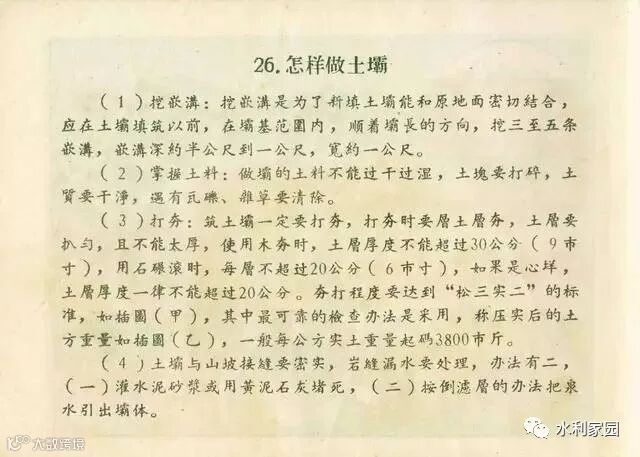 26.怎样做土壩
（1）挖嵌溝：挖嵌溝是为了新填土壩能和原地面密切結合，
应在土壩填筑以前，在壩基范圍内，順着壩長的方向，挖三至五条
嵌溝，嵌溝深約半公尺到一公尺，寬約一公尺。
（2）掌握土料：做壩的土料不能过干过湿，土塊要打碎，土
質要干淨，遇有瓦礫、雜草要清除。
（3）打夯：筑土壩一定要打夯，打夯时要層土層夯，土層要
扒勻，且不能太厚，使用木夯时，土層厚度不能超过30公分（9市
寸），用石碾滾时，每層不超过20公分（6市寸），如果是心垟，
土層厚度一律不能超过20公分。夯打程度要达到“松三实二”的标
准，如插圖（甲），其中最可靠的檢查办法是采用，称压实后的土
方重量如插圖（乙），一般每公方实土重量起碼3800市斤。
（4）土壩与山坡接縫要密实，岩縫漏水要处理，办法有二，
（一）灌水泥砂漿或用黃泥石灰堵死，（二）按倒濾層的办法把泉
水引出壩体。
水利家园
大数跨境